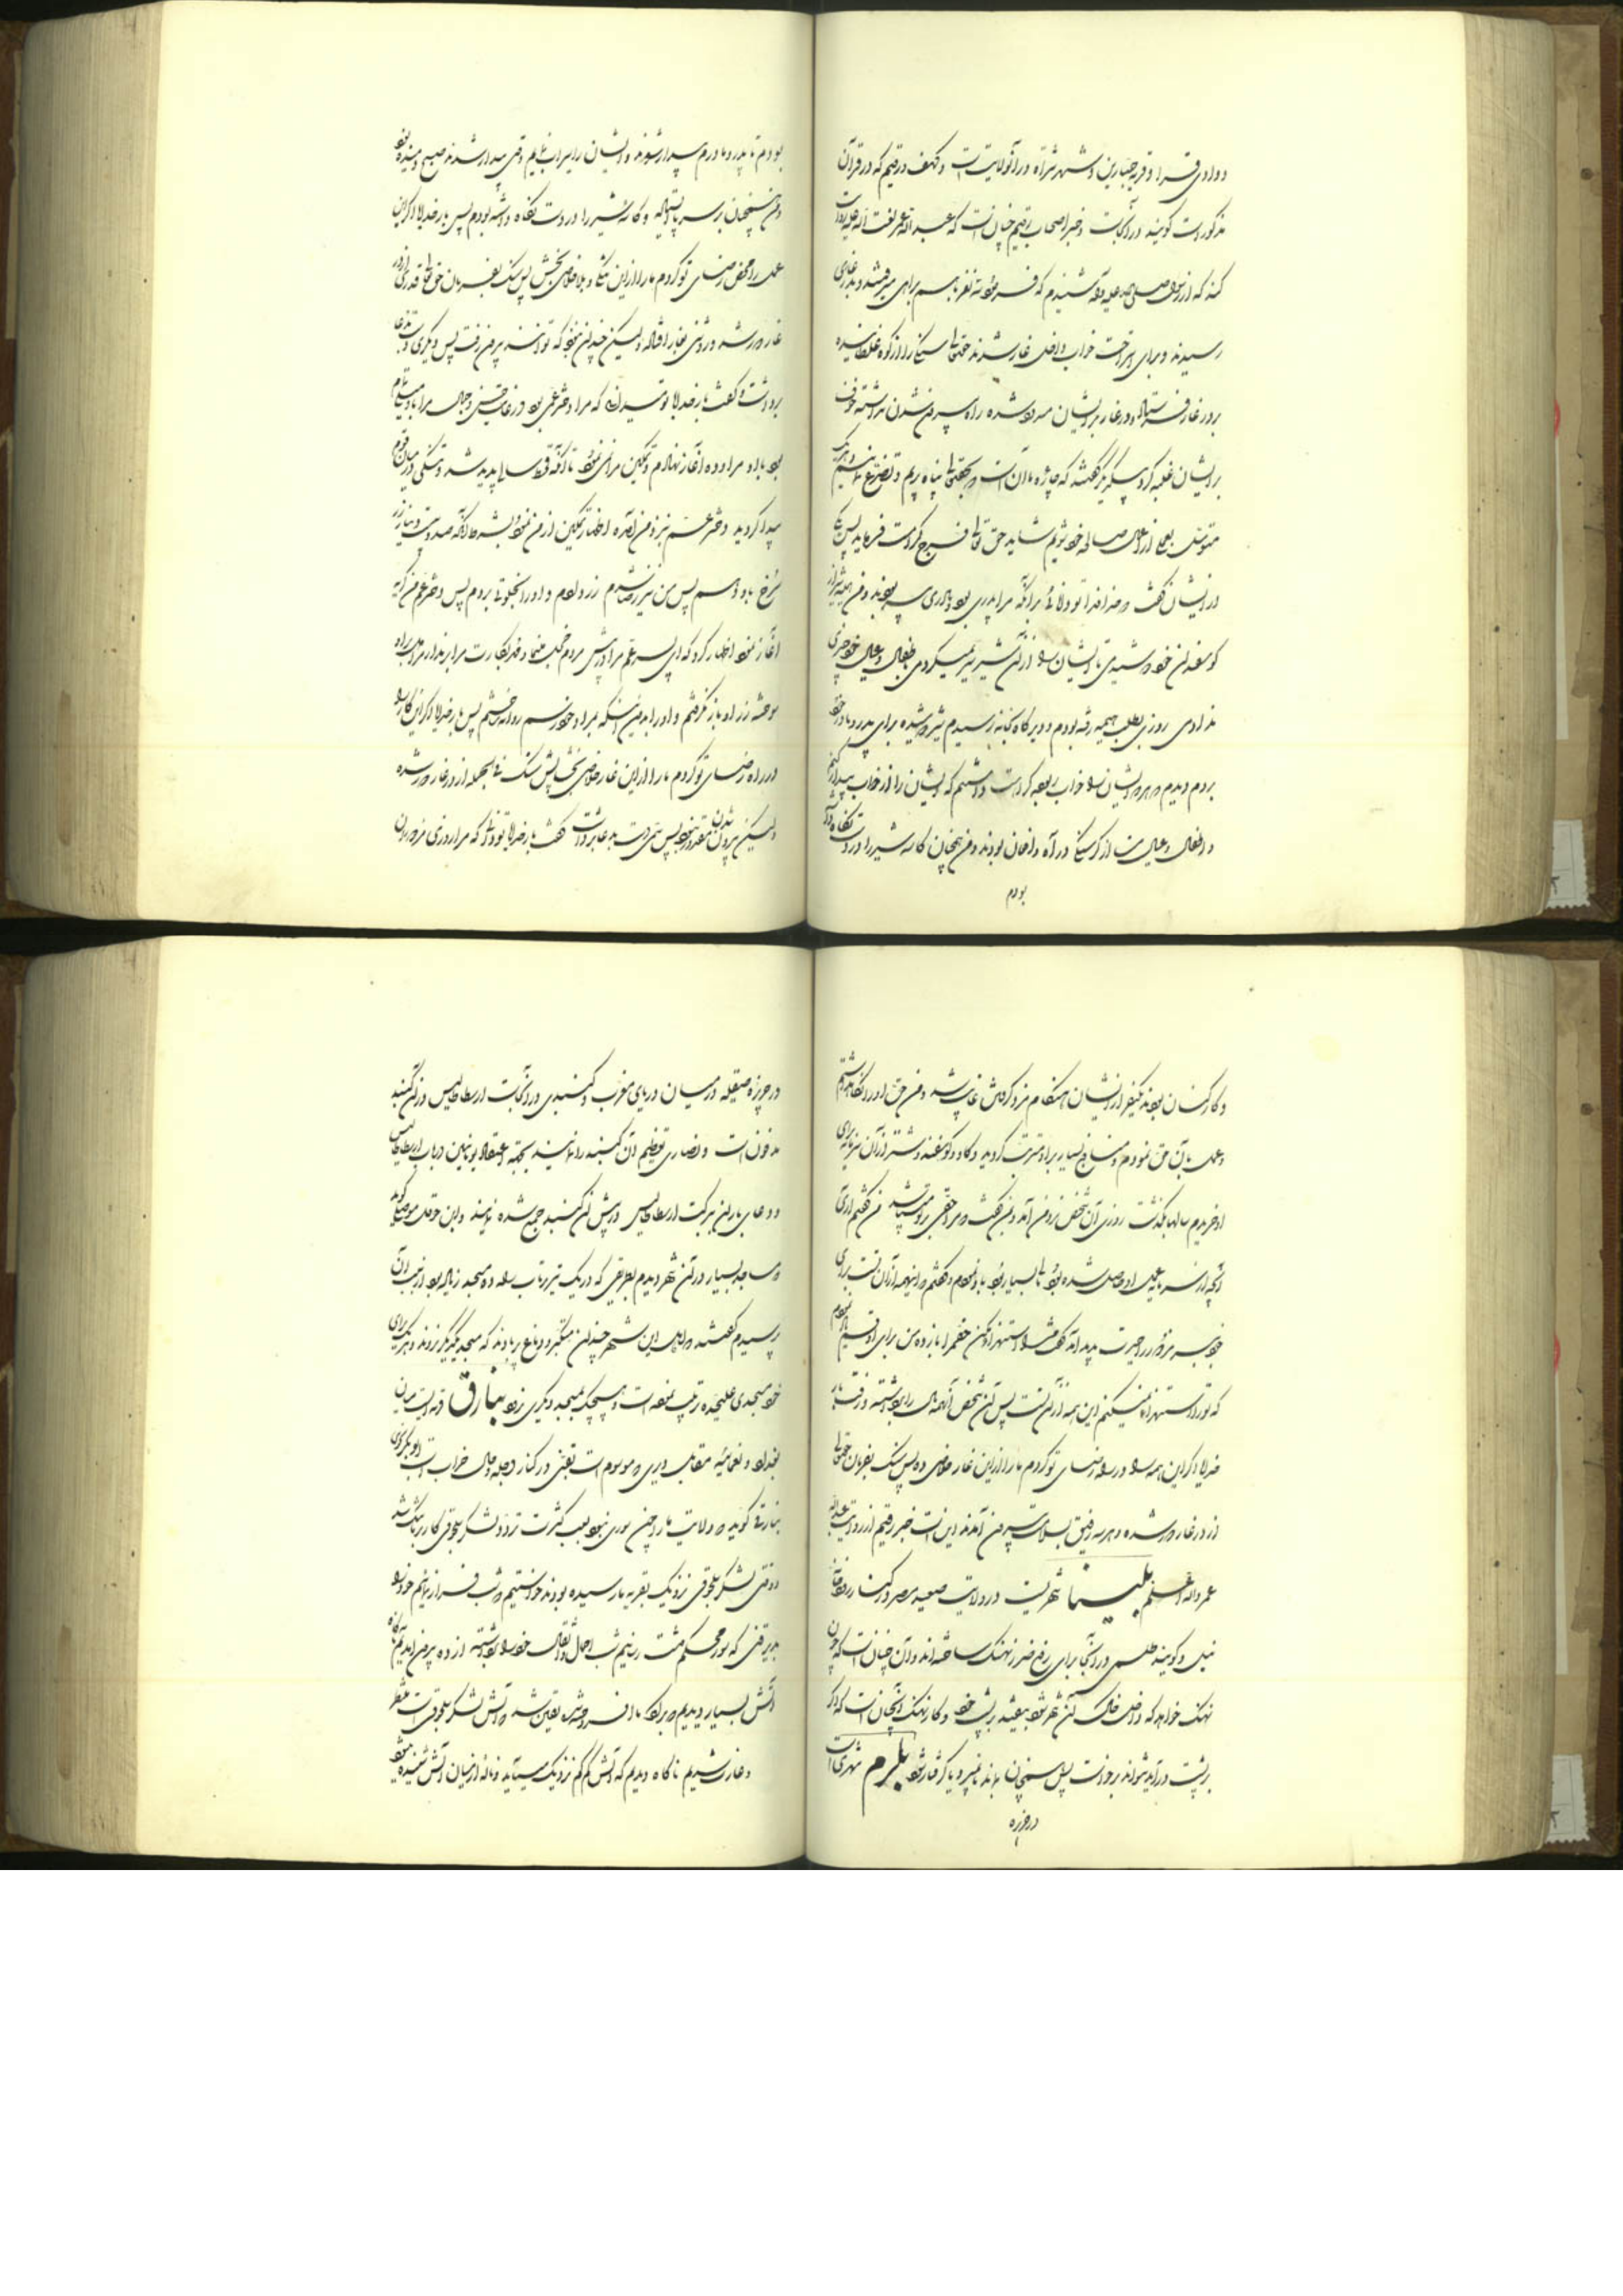 و وادی قری و قریه جبارین و شهر شراة در آنولایت است و کهف و رقیم که در قرآن
مذکور است گویند در آنجاست و خبر اصحاب رقیم چنان است که عبد الله عمر
کند که از رسول صلی الله علیه و آله شنیدم که فرمود سه نفر باهم براهی میرفتند و بدر غاری
رسیدند و برای استراحت خواب داخل غار شدند حقتعالی سنگی را از کوه غلطانیده
بر در غار فرستاد و در غار بر ایشان مسدود شده راه بیرون شدن نداشتند خوف
بر ایشان غلبه کرد بیکدیگر گفتند که چاره ما آن است که بحقتعالی پناه بریم و تضرع نمائیم و هر یک
متوسل بعملی از اعمال صالحه خود شویم شاید حق تعالی فرج کرامت فرماید پس یکی
از ایشان گفت خداوندا تو دانائی بر آنکه مرا پدری بود و مادری پیر بودند و من همیشه از
گوسفندان خود دوشیدی تا ایشان را از آن شیر سیر نمیکردمی باطفال و عیال خود چیزی
ندادمی روزی بطلب هیمه رفته بودم و دیرگاه بخانه رسیدم شیر دوشیده برای پدر و مادر خود
بردم دیدم که هر دو ایشان را خواب ربوده کراهت داشتم که ایشان را از خواب بیدار کنم
و اطفال و عیال من از گرسنگی در آه و افغان بودند و من همچنان کاسه شیر را در دست نگاه داشته
بودم
بودم تا پدر و مادرم بیدار شوند و ایشان را سیراب نمایم وقتی بیدار شدند صبح دمیده بود
و من همچنان بر سر پا ایستاده و کاسه شیر را در دست نگاه داشته بودم پس بار خدایا اگر این
عمل را محض رضای تو کردم ما را از این تنگنا و بلا خلاصی بخش پس سنگ بفرمان حق تعالی قدری از در
غار دور شد و روشنی بغار افتاد ولیکن چندان نبود که توانند بیرون رفت پس دیگری دست بدعا
برداشت و گفت بار خدایا تو میدانی که مرا دختر عمی بود در غایت حسن و جمال مرا با او میل تمام
بود با او مراوده آغاز نهادم و تمکین مرا نمی نمود تا آنکه قحط سالی پدید شد و تنگی در میان مردم
پیدا گردید دختر عم نزد من آمده اظهار تمکین از من نمود بشرط آنکه صد و بیست دینار زر
سرخ باو دهم پس من نیز رضا شدم زر دادم و او را بخلوت بردم پس دختر عم من گریه
آغاز نمود اظهار کرد که ای پسر عم مرا در پیش مردم خجل منما و مهر بکارت مرا برندار مرا دل بر او
سوخت زر از او باز نگرفتم و او را بدون اینکه مراد خود رسم روانه خانه خود پس بار خدایا اگر این کار را
در راه رضای تو کردم ما را از این غار خلاصی بخش پس سنگ فی الجمله از در غار دور شده
ولیکن بیرون شدن مقدور نبود پس سیمی دست بدعا برداشت گفت بار خدایا تو دانائی که مرا روزی مزدوران
و کارکنان بودند یکنفر از ایشان هنگام مزد گرفتن غایب شد و من حق او را نگاه داشتم
و عمل بآن حق نمودم و منافع بسیار بر او مترتب گردید و گاو و گوسفند و شتر از آن سرمایه برای
او خریدم سالها بگذشت روزی آن شخص نزد من آمد و گفت مرا حقی بر تو میباشد من گفتم آری
آنچه از سرمایه عمل او حاصل شده بود مال بسیار بود باو نمودم و گفتم که اینهمه از آن تست برای
خود ببر مزدور را حیرت پدید آمد گفت مرا استهزا مکن حقم را باز ده من برای او قسم یاد نمودم
که تو را استهزا نمیکنم این همه از آن تست پس آن شخص آنهمه مال را برداشته و رفت بار
خدایا اگر این همه را در راه رضای تو کردم ما را از این غار خلاصی ده پس سنگ بفرمان حقتعالی
از در غار دور شده و هر سه رفیق بسلامت بیرون آمدند این است خبر رقیم از روایت عبد الله
عمر والله اعلم بلینا شهریست در ولایت صعید مصر در کنار رودخانه
نیل و گویند طلسمی در آنجا برای رفع ضرر نهنگ ساخته اند و آن چنان است که چون
نهنگ خواهد که داخل خاک آن شهر شود بیفتد بر پشت خود و کار نهنگ آنچنان است که اگر
بر پشت درآید نتواند برخاست پس همچنان بماند تا بمیرد یا گرفتار شود بلرم شهری است
در جزیره
در جزیره صقلیه در میان دریای مغرب و گنبدی در آنجاست ارسطاطالیس در آن گنبد
مدفون است و نصاری تعظیم آن گنبد را نمایند بجهة اعتقاد یونانیین در باب ارسطاطالیس
و دعای باران ببرکت ارسطاطالیس در پیش آن گنبد جمع شده نمایند و ابن حوقل موصلی گوید
مساجد بسیار در آن شهر دیدم بطریقی که در یک تیر پرتاب راه ده مسجد زیاد بود از سبب آن
پرسیدم گفتند که اهل این شهر چندان متکبر و دماغ پر بادند که مسجد یکدیگر نروند و هر یک برای
خود مسجدی علیحده ترتیب نموده است و هیچیک بمسجد دیگری نرود بنارق قریه ایست میان
بغداد و نعمانیه مقابل دیری که موسوم است بقنی در کنار دجله و حال خراب است ابوبکر
بنارقی گوید که ولایت ما را چون سوری نبود بسبب کثرت تردد لشکر سلجوقی کار بر ما تنگ شد
وقتی لشکر سلجوقی نزدیک بقریه ما رسیده بودند خواستیم که شب فرار نمائیم خود را
بدیر قنی که سور محکم داشت رسانیم شب احمال و اثقال خود را برداشته از ده بیرون آمدیم ناگاه
آتش بسیار دیدیم در برابر ما افروخته شده یقین شد که آتش لشکر سلجوقی است منتظر
و خائف شدیم ناگاه دیدیم که آتش کم کم نزدیک میآید و ناله از میان آتش شنیده میشود